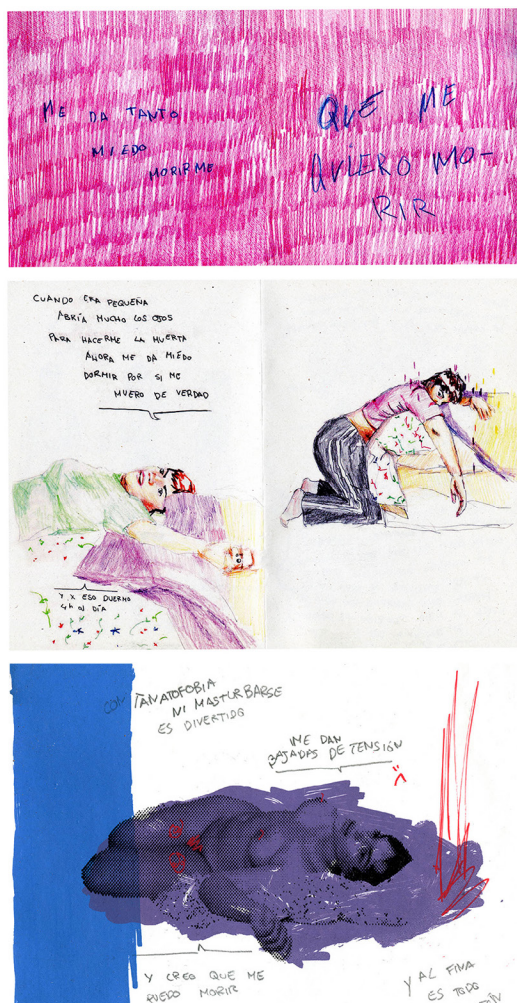 ME DA TANTO
MIEDO
MORIRME
QUE ME
QUIERO MO-
RIR
CUANDO ERA PEQUEÑA
ABRÍA MUCHO LOS OJOS
PARA HACERME LA MUERTA
AHORA ME DA MIEDO
DORMIR POR SI ME
MUERO DE VERDAD
Y X ESO DUERMO
4h AL DÍA
CON TANATOFOBIA
NI MASTURBARSE
ES DIVERTIDO
ME DAN
BAJADAS DE TENSIÓN
:(
Y CREO QUE ME
PUEDO MORIR
Y AL FINA
ES TODO